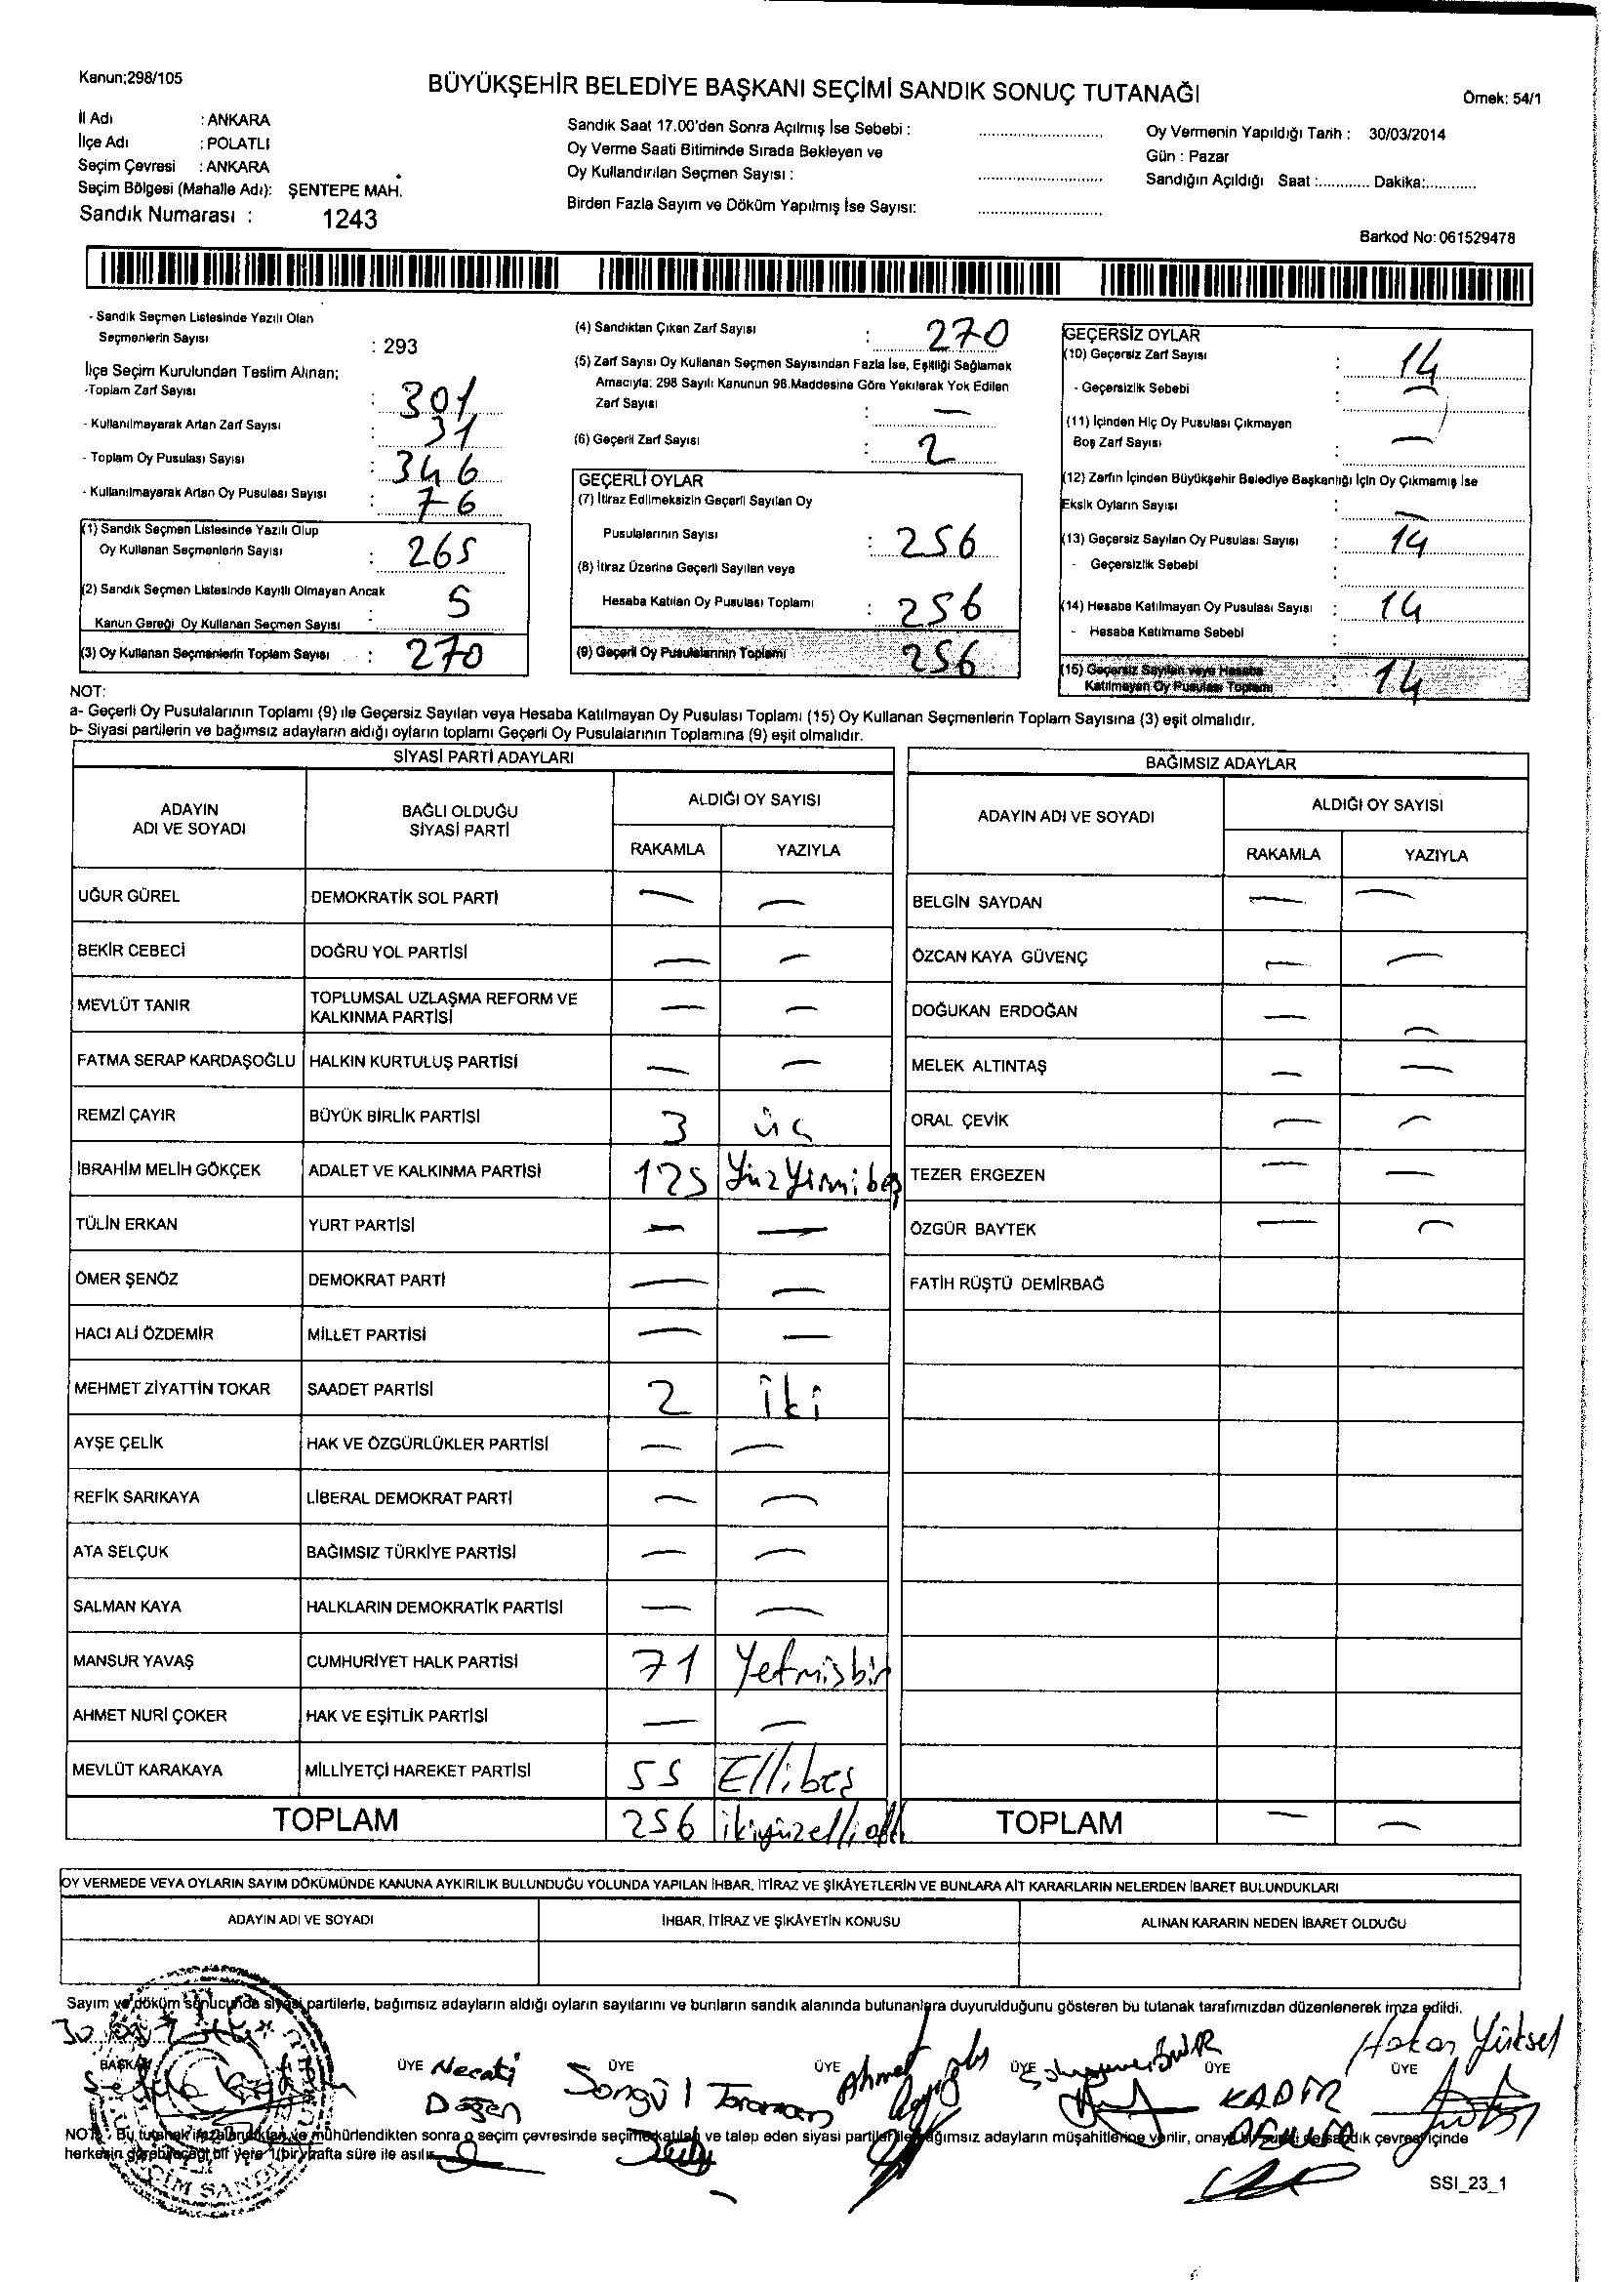 Kanun;298/105
BÜYÜKŞEHİR BELEDİYE BAŞKANI SEÇİMİ SANDIK SONUÇ TUTANAĞI
Örnek: 54/1
İl Adı : ANKARA
İlçe Adı : POLATLI
Seçim Çevresi : ANKARA
Seçim Bölgesi (Mahalle Adı): ŞENTEPE MAH.
Sandık Numarası : 1243
Sandık Saat 17.00'den Sonra Açılmış İse Sebebi : ..............................
Oy Verme Saati Bitiminde Sırada Bekleyen ve
Oy Kullandırılan Seçmen Sayısı : ..............................
Birden Fazla Sayım ve Döküm Yapılmış İse Sayısı: ..............................
Oy Vermenin Yapıldığı Tarih : 30/03/2014
Gün : Pazar
Sandığın Açıldığı Saat :............ Dakika:............
Barkod No: 061529478
- Sandık Seçmen Listesinde Yazılı Olan
Seçmenlerin Sayısı : 293
İlçe Seçim Kurulundan Teslim Alınan;
-Toplam Zarf Sayısı : 301
- Kullanılmayarak Artan Zarf Sayısı : 31
- Toplam Oy Pusulası Sayısı : 346
- Kullanılmayarak Artan Oy Pusulası Sayısı : 76
(1) Sandık Seçmen Listesinde Yazılı Olup
Oy Kullanan Seçmenlerin Sayısı : 265
(2) Sandık Seçmen Listesinde Kayıtlı Olmayan Ancak
Kanun Gereği Oy Kullanan Seçmen Sayısı : 5
(3) Oy Kullanan Seçmenlerin Toplam Sayısı : 270
(4) Sandıktan Çıkan Zarf Sayısı : 270
(5) Zarf Sayısı Oy Kullanan Seçmen Sayısından Fazla İse, Eşitliği Sağlamak
Amacıyla; 298 Sayılı Kanunun 98.Maddesine Göre Yakılarak Yok Edilen
Zarf Sayısı : —
(6) Geçerli Zarf Sayısı : 2
GEÇERLİ OYLAR
(7) İtiraz Edilmeksizin Geçerli Sayılan Oy
Pusulalarının Sayısı : 256
(8) İtiraz Üzerine Geçerli Sayılan veya
Hesaba Katılan Oy Pusulası Toplamı : 256
(9) Geçerli Oy Pusulalarının Toplamı 256
GEÇERSİZ OYLAR
(10) Geçersiz Zarf Sayısı : 14
- Geçersizlik Sebebi : —
(11) İçinden Hiç Oy Pusulası Çıkmayan
Boş Zarf Sayısı : —
(12) Zarfın İçinden Büyükşehir Belediye Başkanlığı İçin Oy Çıkmamış İse
Eksik Oyların Sayısı : —
(13) Geçersiz Sayılan Oy Pusulası Sayısı : 14
- Geçersizlik Sebebi :
(14) Hesaba Katılmayan Oy Pusulası Sayısı : 14
- Hesaba Katılmama Sebebi :
(15) Geçersiz Sayılan veya Hesaba
Katılmayan Oy Pusulası Toplamı : 14
NOT:
a- Geçerli Oy Pusulalarının Toplamı (9) ile Geçersiz Sayılan veya Hesaba Katılmayan Oy Pusulası Toplamı (15) Oy Kullanan Seçmenlerin Toplam Sayısına (3) eşit olmalıdır.
b- Siyasi partilerin ve bağımsız adayların aldığı oyların toplamı Geçerli Oy Pusulalarının Toplamına (9) eşit olmalıdır.
SİYASİ PARTİ ADAYLARI
ADAYIN ADI VE SOYADI BAĞLI OLDUĞU SİYASİ PARTİ ALDIĞI OY SAYISI
RAKAMLA YAZIYLA
UĞUR GÜREL DEMOKRATİK SOL PARTİ — —
BEKİR CEBECİ DOĞRU YOL PARTİSİ — —
MEVLÜT TANIR TOPLUMSAL UZLAŞMA REFORM VE KALKINMA PARTİSİ — —
FATMA SERAP KARDAŞOĞLU HALKIN KURTULUŞ PARTİSİ — —
REMZİ ÇAYIR BÜYÜK BİRLİK PARTİSİ 3 üç
İBRAHİM MELİH GÖKÇEK ADALET VE KALKINMA PARTİSİ 125 Yüzyirmibeş
TÜLİN ERKAN YURT PARTİSİ — —
ÖMER ŞENÖZ DEMOKRAT PARTİ — —
HACI ALİ ÖZDEMİR MİLLET PARTİSİ — —
MEHMET ZİYATTİN TOKAR SAADET PARTİSİ 2 İki
AYŞE ÇELİK HAK VE ÖZGÜRLÜKLER PARTİSİ — —
REFİK SARIKAYA LİBERAL DEMOKRAT PARTİ — —
ATA SELÇUK BAĞIMSIZ TÜRKİYE PARTİSİ — —
SALMAN KAYA HALKLARIN DEMOKRATİK PARTİSİ — —
MANSUR YAVAŞ CUMHURİYET HALK PARTİSİ 71 Yetmişbir
AHMET NURİ ÇOKER HAK VE EŞİTLİK PARTİSİ — —
MEVLÜT KARAKAYA MİLLİYETÇİ HAREKET PARTİSİ 55 Ellibeş
TOPLAM 256 ikiyüzellialtı
BAĞIMSIZ ADAYLAR
ADAYIN ADI VE SOYADI ALDIĞI OY SAYISI
RAKAMLA YAZIYLA
BELGİN SAYDAN — —
ÖZCAN KAYA GÜVENÇ — —
DOĞUKAN ERDOĞAN — —
MELEK ALTINTAŞ — —
ORAL ÇEVİK — —
TEZER ERGEZEN — —
ÖZGÜR BAYTEK — —
FATİH RÜŞTÜ DEMİRBAĞ
TOPLAM — —
OY VERMEDE VEYA OYLARIN SAYIM DÖKÜMÜNDE KANUNA AYKIRILIK BULUNDUĞU YOLUNDA YAPILAN İHBAR, İTİRAZ VE ŞİKÂYETLERİN VE BUNLARA AİT KARARLARIN NELERDEN İBARET BULUNDUKLARI
ADAYIN ADI VE SOYADI İHBAR, İTİRAZ VE ŞİKÂYETİN KONUSU ALINAN KARARIN NEDEN İBARET OLDUĞU
Sayım ve döküm sonucunda siyasi partilerle, bağımsız adayların aldığı oyların sayılarını ve bunların sandık alanında bulunanlara duyurulduğunu gösteren bu tutanak tarafımızdan düzenlenerek imza edildi.
BAŞKAN ÜYE ÜYE ÜYE ÜYE ÜYE ÜYE
Necati Songül Toraman Ahmet KADİR Hakan Yüksel
NOT : Bu tutanak imzalandıktan ve mühürlendikten sonra o seçim çevresinde seçime katılan ve talep eden siyasi partiler ile bağımsız adayların müşahitlerine verilir, onaylı bir sandık çevresi içinde
herkesin görebileceği bir yere 1(bir) hafta süre ile asılır.
SSI_23_1